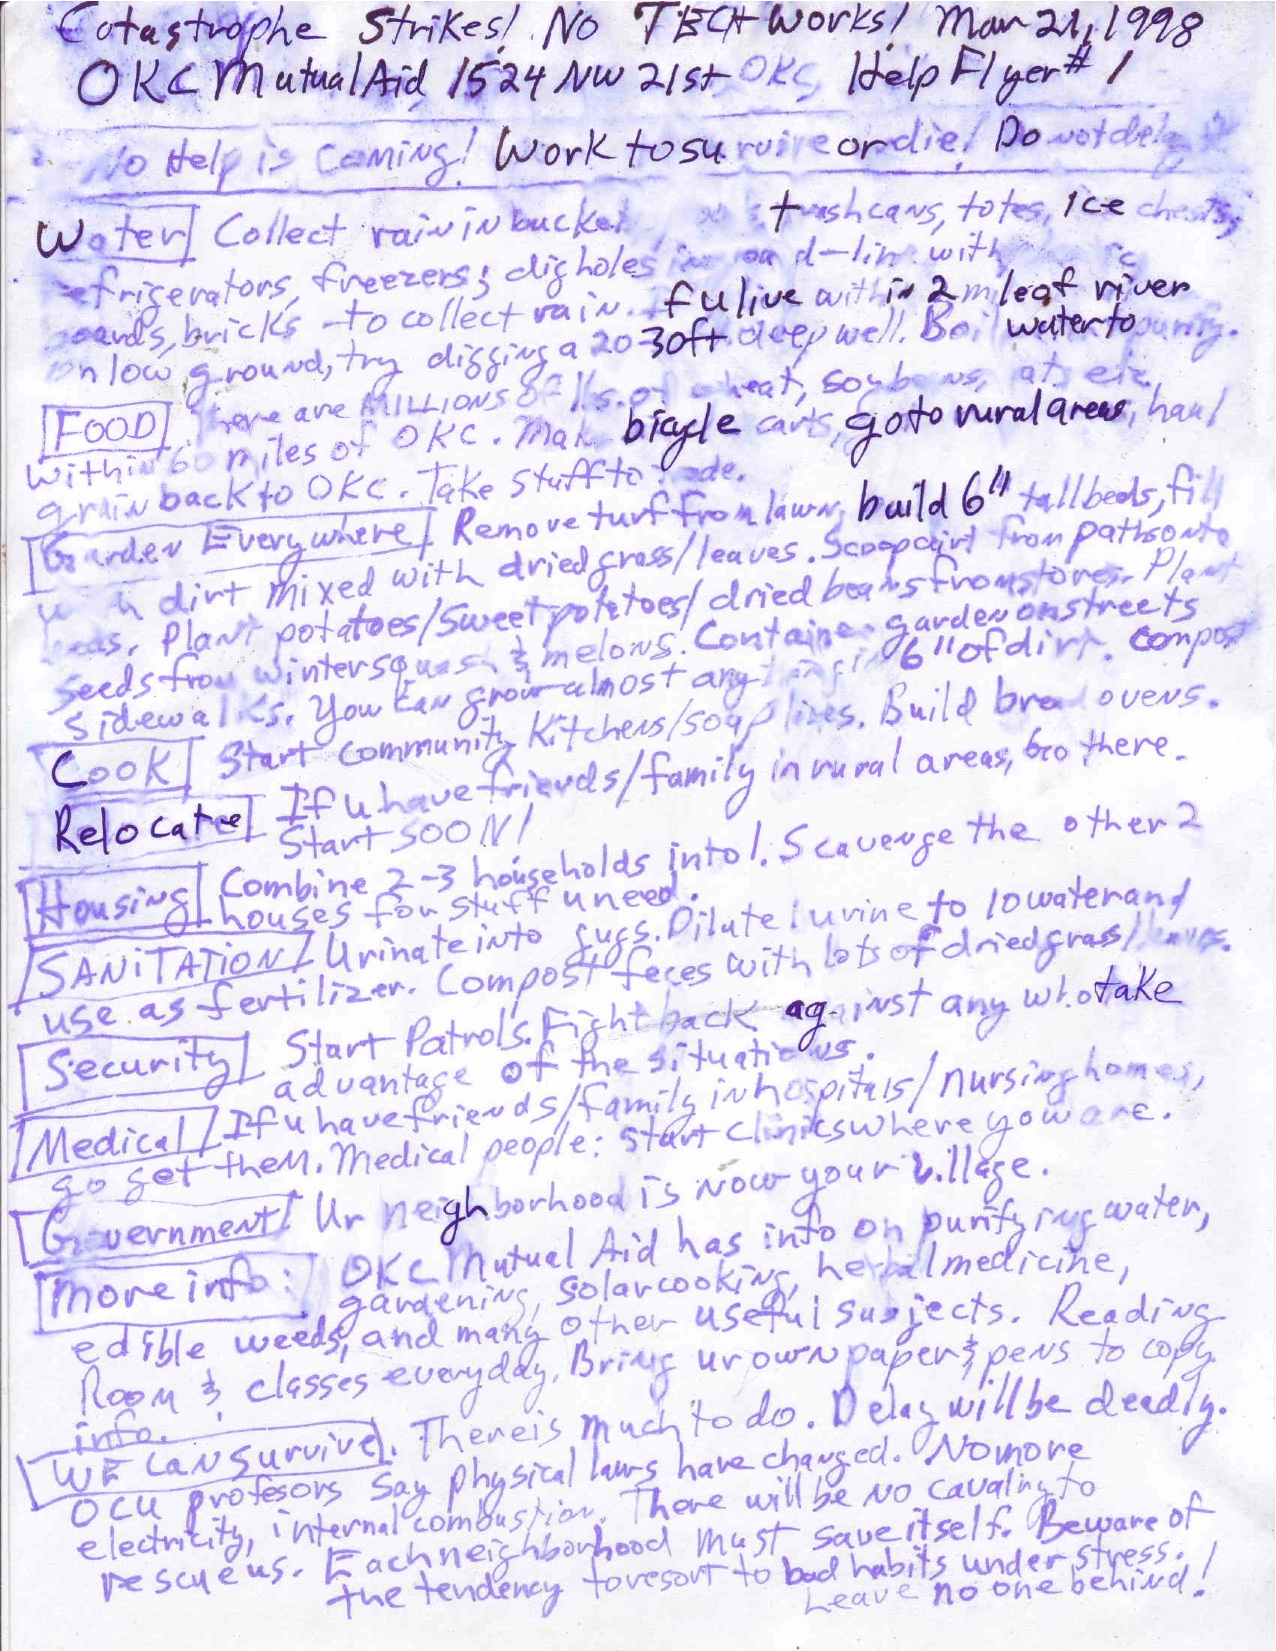 Catastrophe Strikes! No TECH Works! Mar 21, 1998
OKC Mutual Aid 1524 NW 21st OKC, Help Flyer #1
No Help is Coming! Work to survive or die! Do not delay
Water Collect rain in bucket trashcans, totes, ice chests,
refrigerators, freezers; dig holes in d-line with
boards, bricks - to collect rain. If u live within 2 miles of river
on low ground, try digging a 20-30ft deep well. Boil water to purify.
FOOD There are MILLIONS of lbs. of wheat, soybeans, oats etc.
within 60 miles of OKC. Make bicycle carts, go to rural areas, haul
grain back to OKC. Take stuff to trade.
Garden Everywhere Remove turf from lawn, build 6" tall beds, fill
with dirt mixed with dried grass/leaves. Scoop dirt from paths onto
beds. Plant potatoes/sweet potatoes/dried beans from stores. Plant
seeds from winter squash & melons. Container garden on streets
sidewalks. You can grow almost anything in 6" of dirt. Compost
Cook Start Community Kitchens/soup lines. Build bread ovens.
Relocate If u have friends/family in rural areas, Go there.
Start SOON!
Housing Combine 2-3 households into 1. Scavenge the other 2
houses for stuff u need.
SANITATION Urinate into jugs. Dilute 1 urine to 10 water and
use as fertilizer. Compost feces with lots of dried grass/leaves.
Security Start Patrols. Fight back against any who take
advantage of the situations.
Medical If u have friends/family in hospitals/nursing homes,
go get them. Medical people: start clinics where you are.
Government Ur neighborhood is now your village.
More info: OKC Mutual Aid has info on purifying water,
gardening, solar cooking, herbal medicine,
edible weeds, and many other useful subjects. Reading
Room & classes everyday. Bring ur own paper & pens to copy
info.
WE CAN SURVIVE. There is much to do. Delay will be deadly.
OCU profesors say physical laws have changed. No more
electricity, internal combustion. There will be no cavalry to
rescue us. Each neighborhood must save itself. Beware of
the tendency to resort to bad habits under stress.
Leave no one behind!